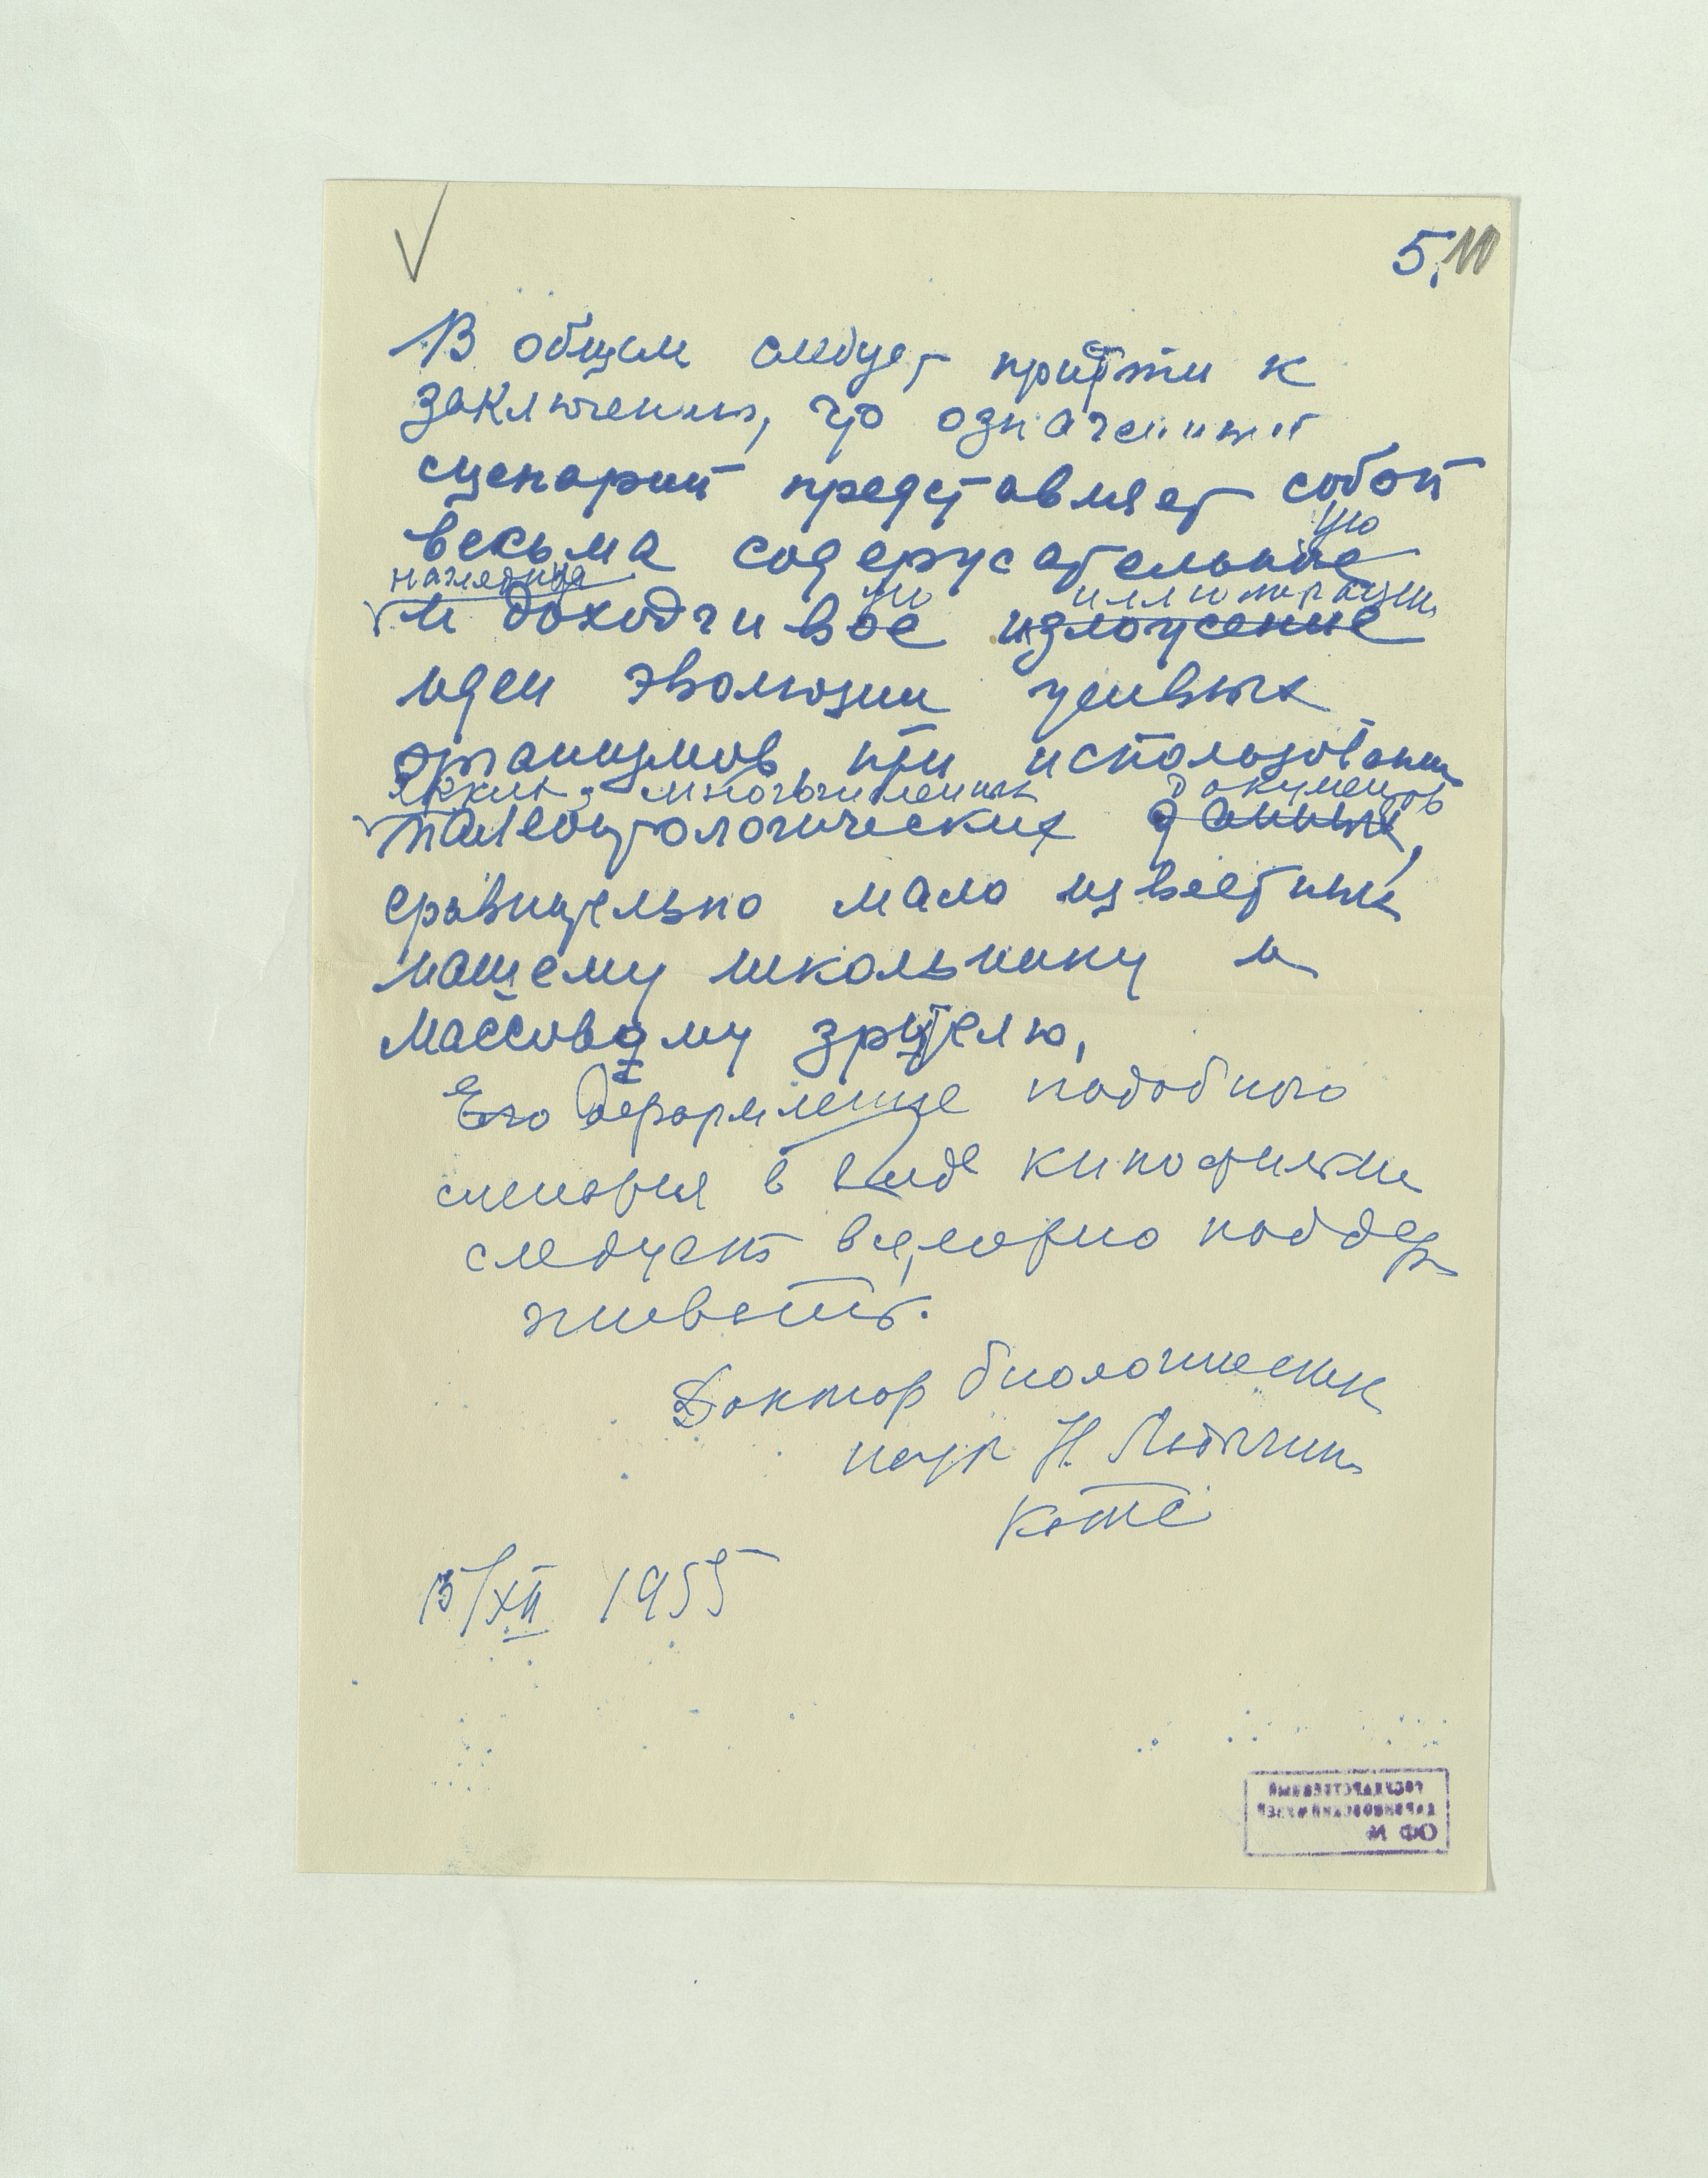 5. 10
В общем следует прийти к
заключению, что означенный
сценарий представляет собой
ую
весьма содержательные
наглядную
ую иллюстрацию
и доходчивое изложение
идеи эволюции живых
организмов при использовании
ярких, многочисленных документов
палеонтологических данных,
сравнительно мало известных
нашему школьнику и
массовому зрителю.
Его оформление подобного
сценария в виде кинофильма
следует всемерно поддер
живать.
Доктор биологических
наук Н. Ладыгина
Котс
15/XII 1955
ГОСУДАРСТВЕННЫЙ
ДАРВИНОВСКИЙ МУЗЕЙ
ОФ №